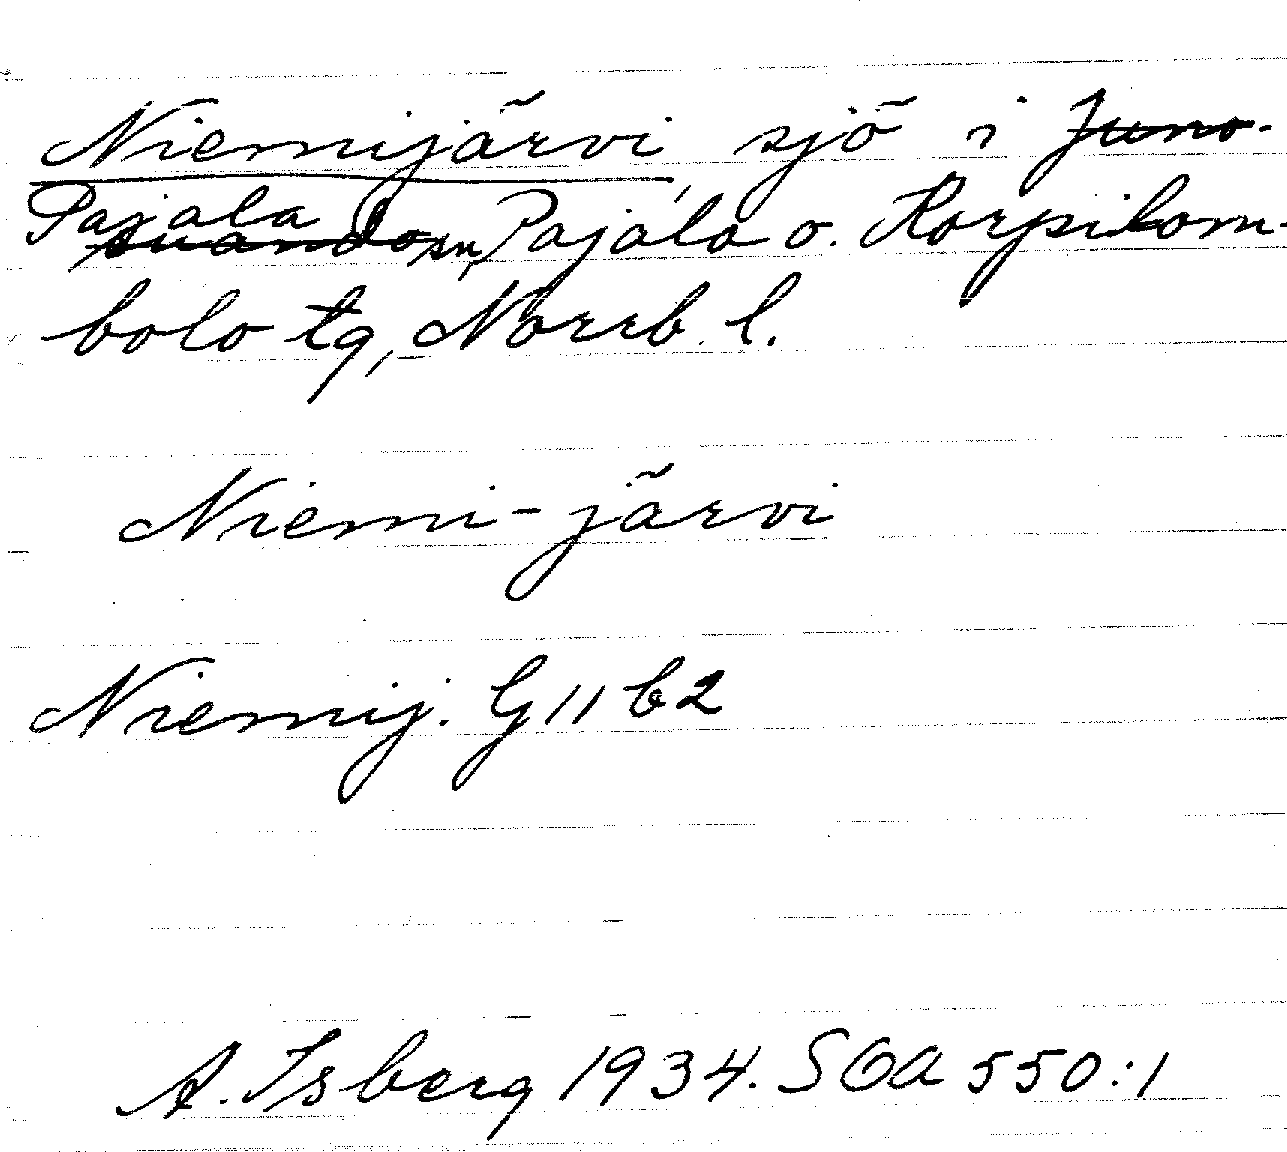 Niemijärvi, sjö i Juno-
Pajala
suando sn, Pajala o. Korpilom-
bolo tg, Norrb. l.
Niemi-järvi
Niemij. G 11 b 2
A. Isberg 1934. SOA 550:1